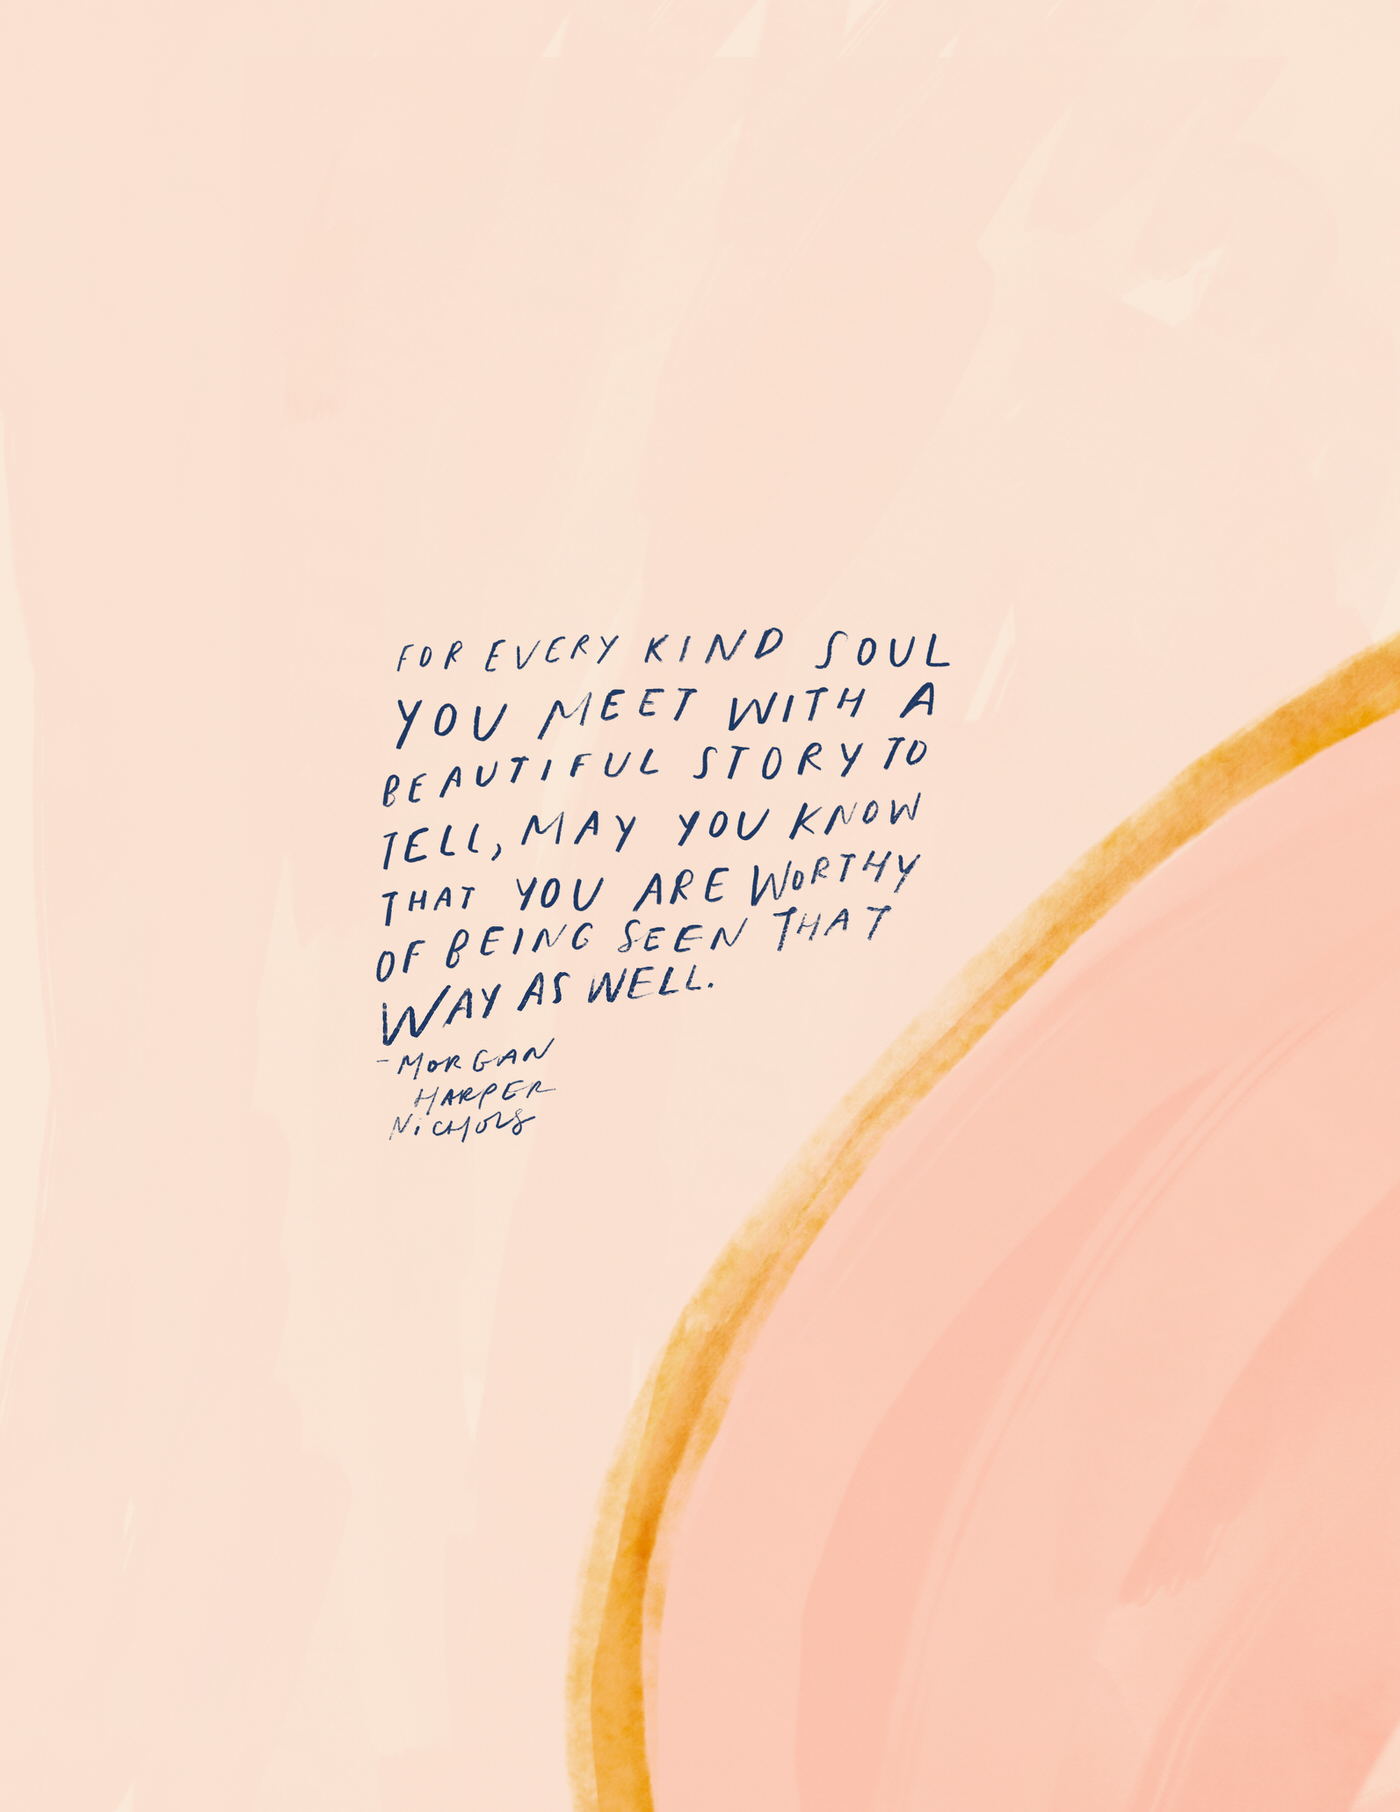 FOR EVERY KIND SOUL
YOU MEET WITH A
BEAUTIFUL STORY TO
TELL, MAY YOU KNOW
THAT YOU ARE WORTHY
OF BEING SEEN THAT
WAY AS WELL.
-MORGAN
HARPER
NiCHOLS